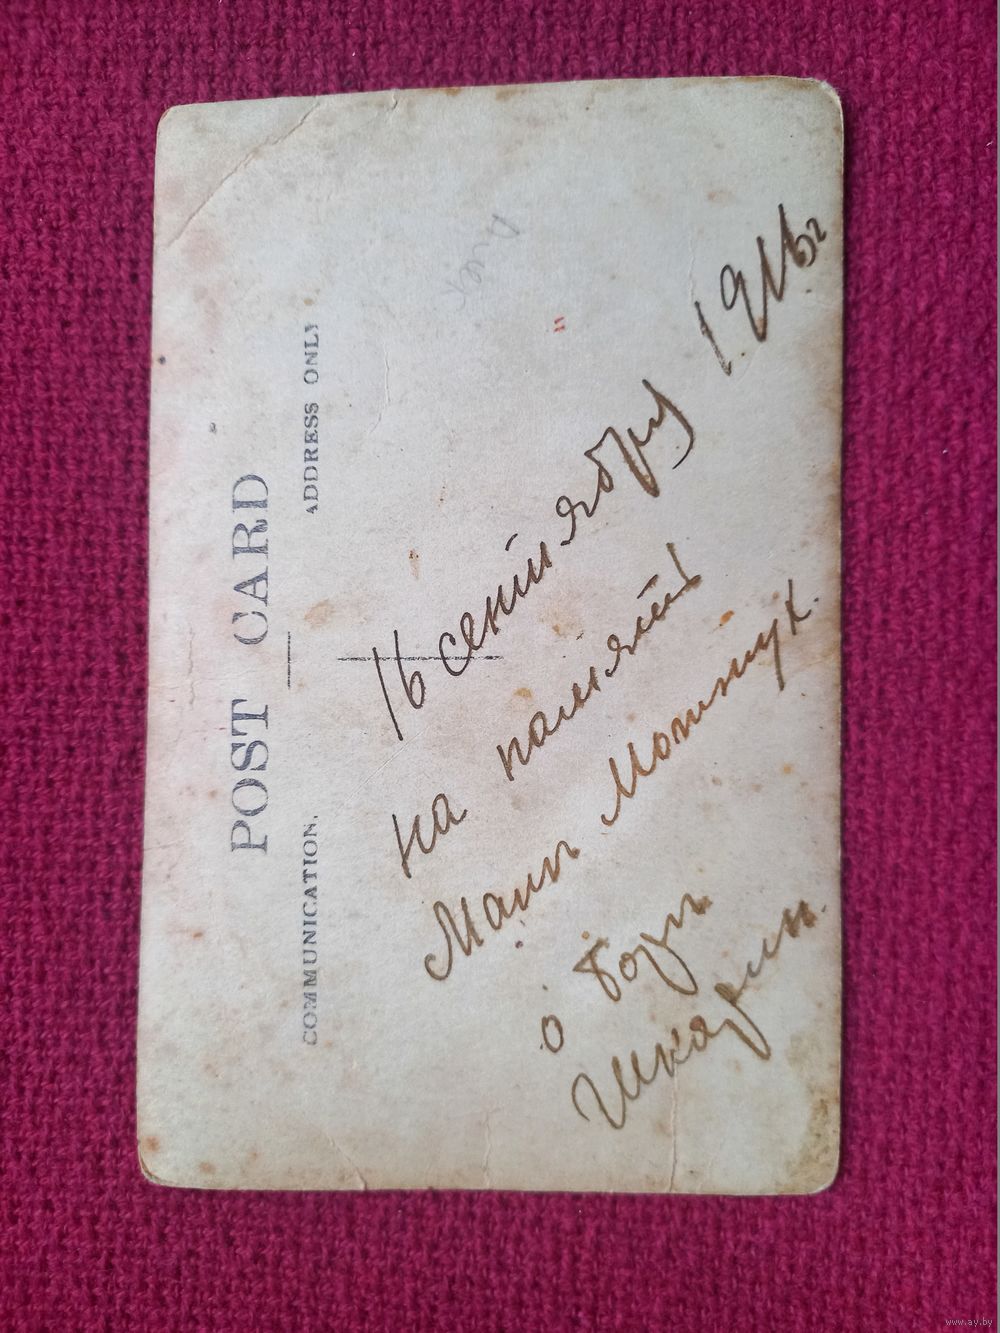 POST CARD
COMMUNICATION.
ADDRESS ONLY
16 сентиябру 1916г
на памяит
Маши Мотнук.
о Бори
Шкарин.
www.ay.by